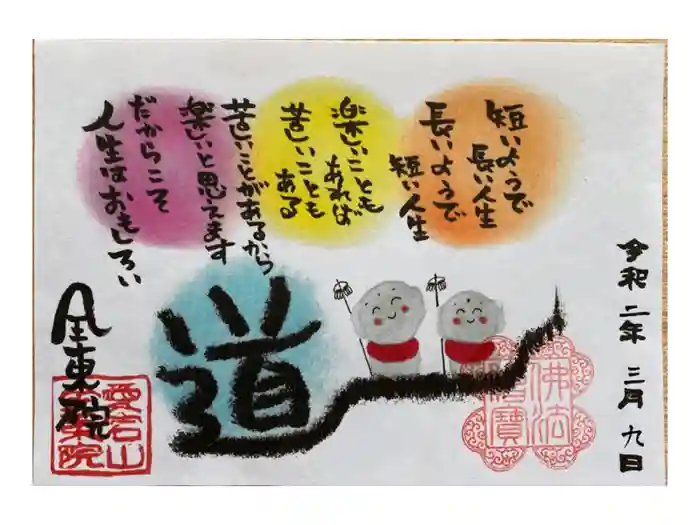 令和二年 三月 九日
短いようで
長い人生
長いようで
短い人生
楽しいことも
あれば
苦しいことも
ある
苦しいことがあるから
楽しいと思えます
だからこそ
人生はおもしろい
道
東院
佛法
寶
愛宕山